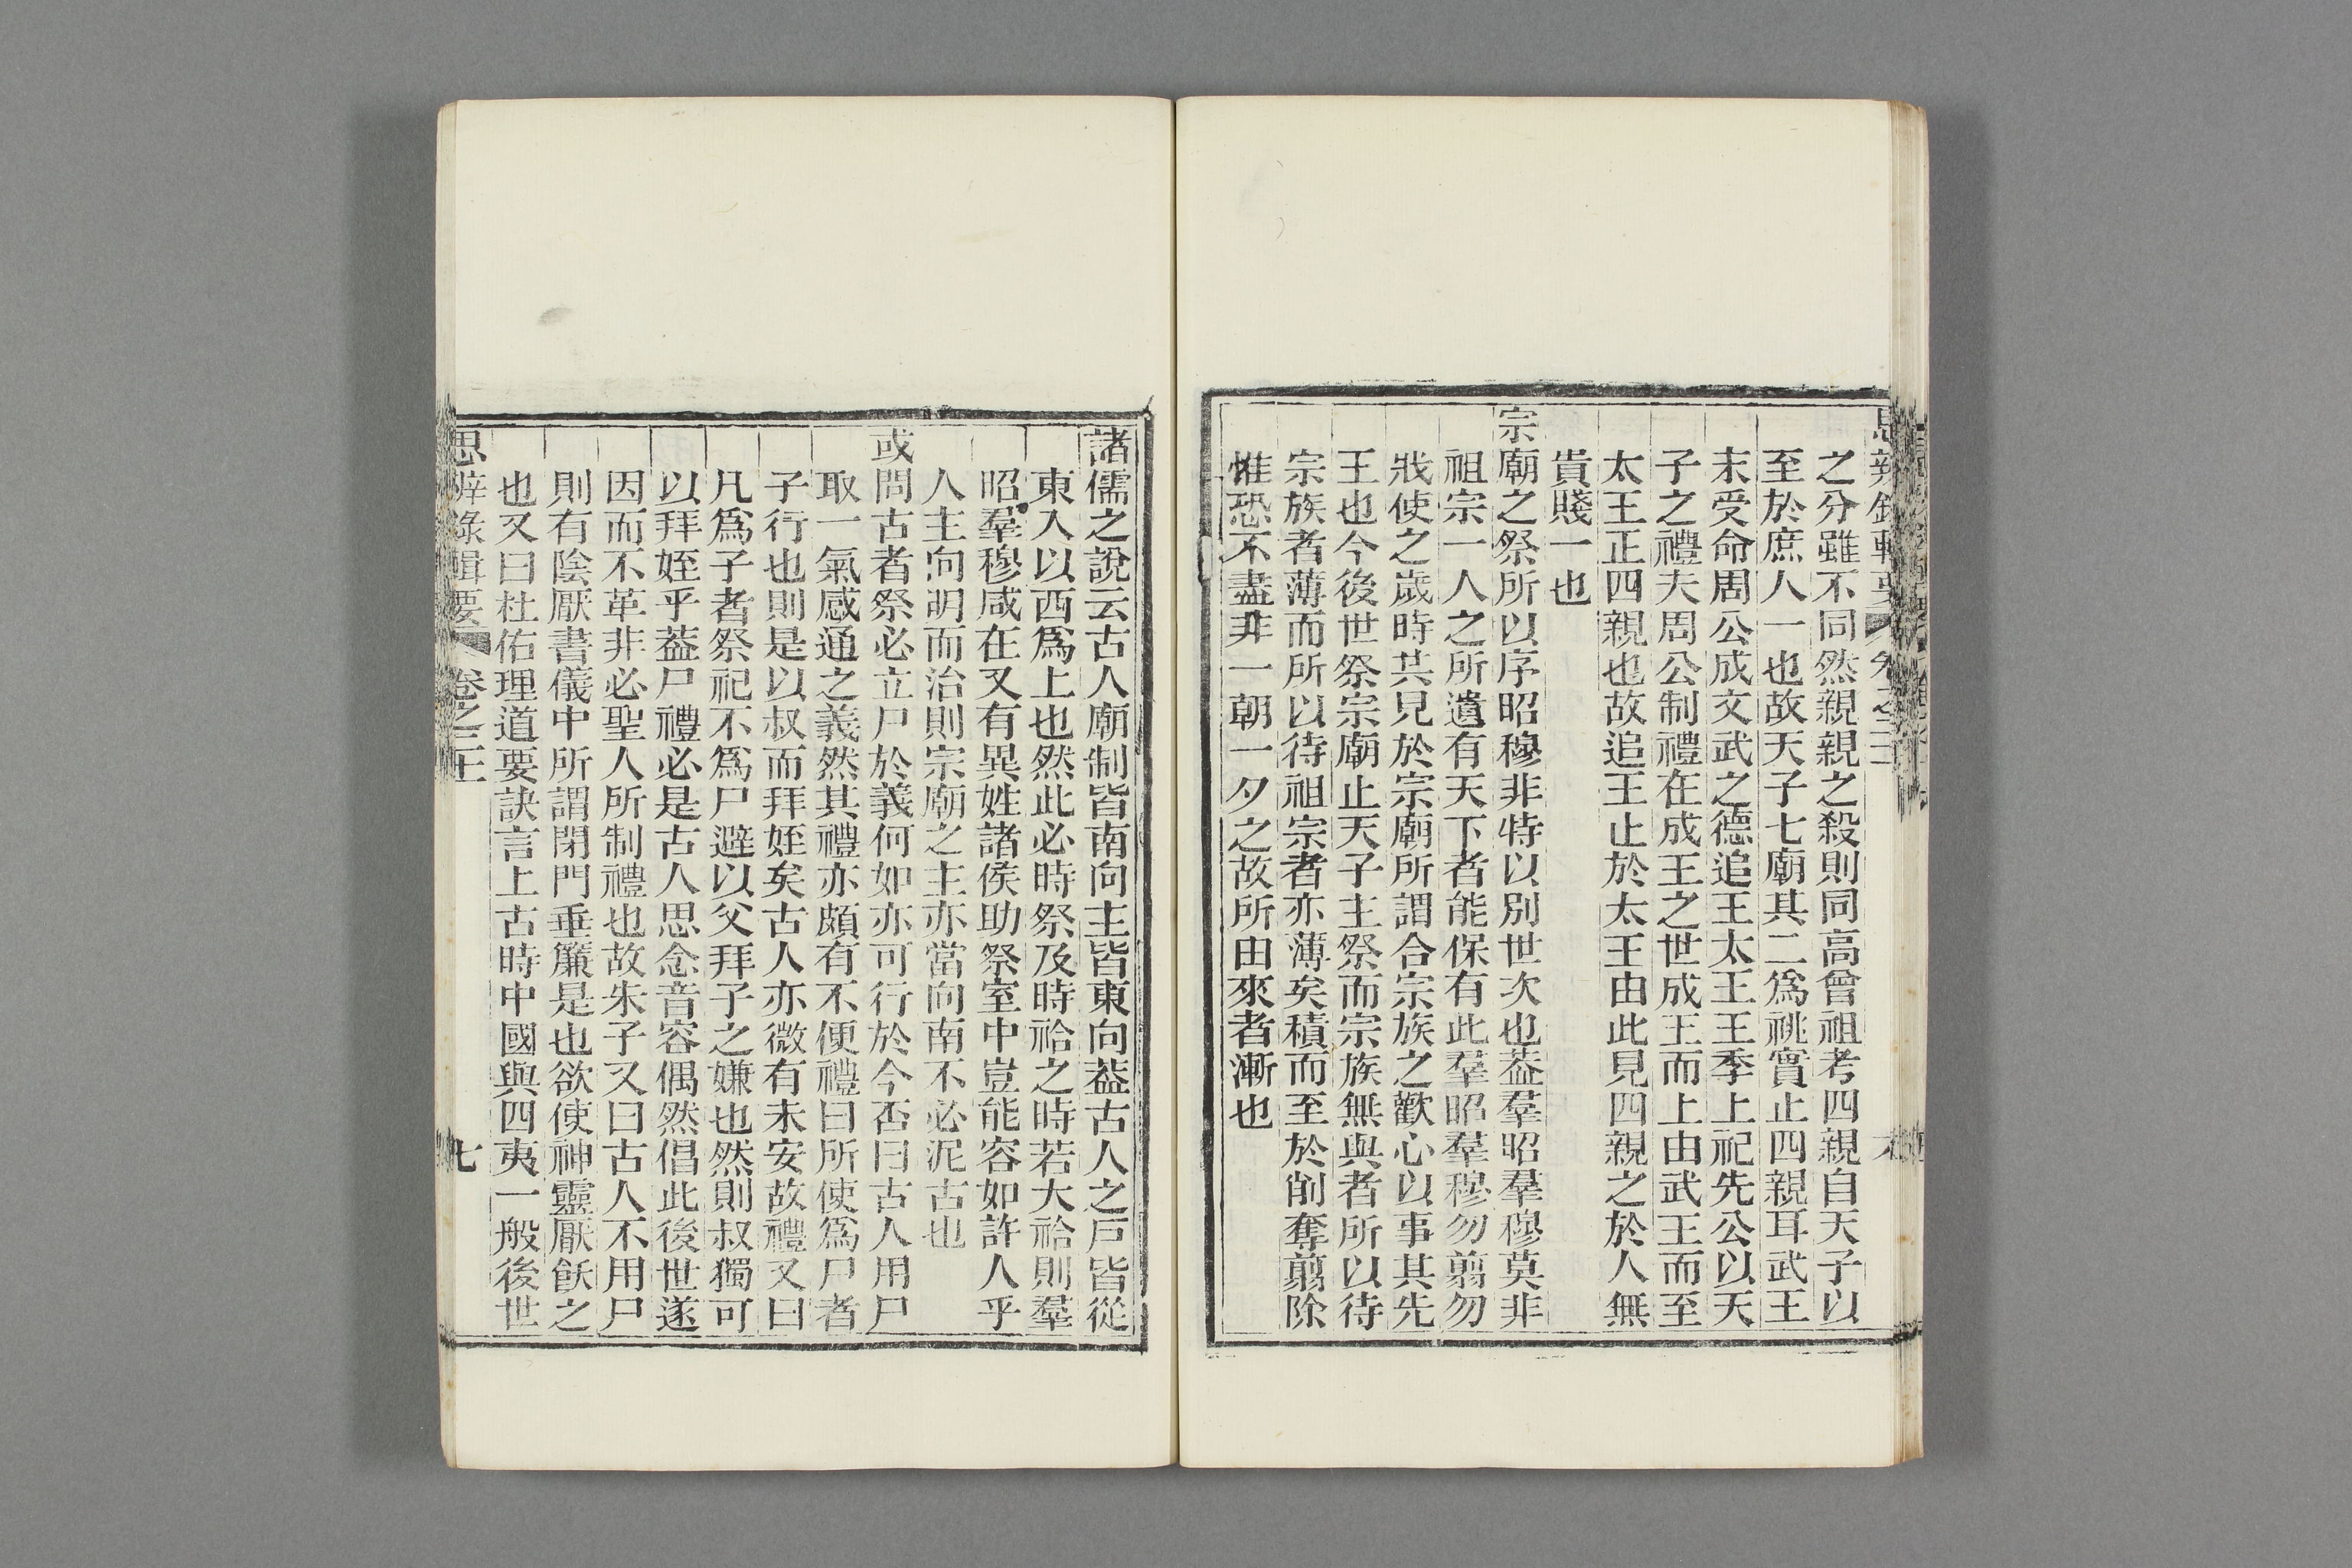 之分雖不同然親親之殺則同高曾祖考四親自天子以
至於庶人一也故天子七廟其二爲祧實止四親耳武王
末受命周公成文武之德追王太王王季上祀先公以天
子之禮夫周公制禮在成王之世成王而上由武王而至
太王正四親也故追王止於太王由此見四親之於人無
貴賤一也
宗廟之祭所以序昭穆非特以別世次也葢羣昭羣穆莫非
祖宗一人之所遺有天下者能保有此羣昭羣穆勿翦勿
戕使之歲時共見於宗廟所謂合宗族之歡心以事其先
王也今後世祭宗廟止天子主祭而宗族無與者所以待
宗族者薄而所以待祖宗者亦薄矣積而至於削奪翦除
惟恐不盡非一朝一夕之故所由來者漸也
諸儒之說云古人廟制皆南向主皆東向葢古人之戸皆從
東入以西爲上也然此必時祭及時祫之時若大祫則羣
昭羣穆咸在又有異姓諸侯助祭室中豈能容如許人乎
人主向明而治則宗廟之主亦當向南不必泥古也
或問古者祭必立尸於義何如亦可行於今否曰古人用尸
取一氣感通之義然其禮亦頗有不便禮曰所使爲尸者
子行也則是以叔而拜姪矣古人亦微有未安故禮又曰
凡爲子者祭祀不爲尸避以父拜子之嫌也然則叔獨可
以拜姪乎葢尸禮必是古人思念音容偶然倡此後世遂
因而不革非必聖人所制禮也故朱子又曰古人不用尸
則有陰厭書儀中所謂閉門垂簾是也欲使神靈厭飫之
也又曰杜佑理道要訣言上古時中國與四夷一般後世
思辨錄輯要 卷之二十 七